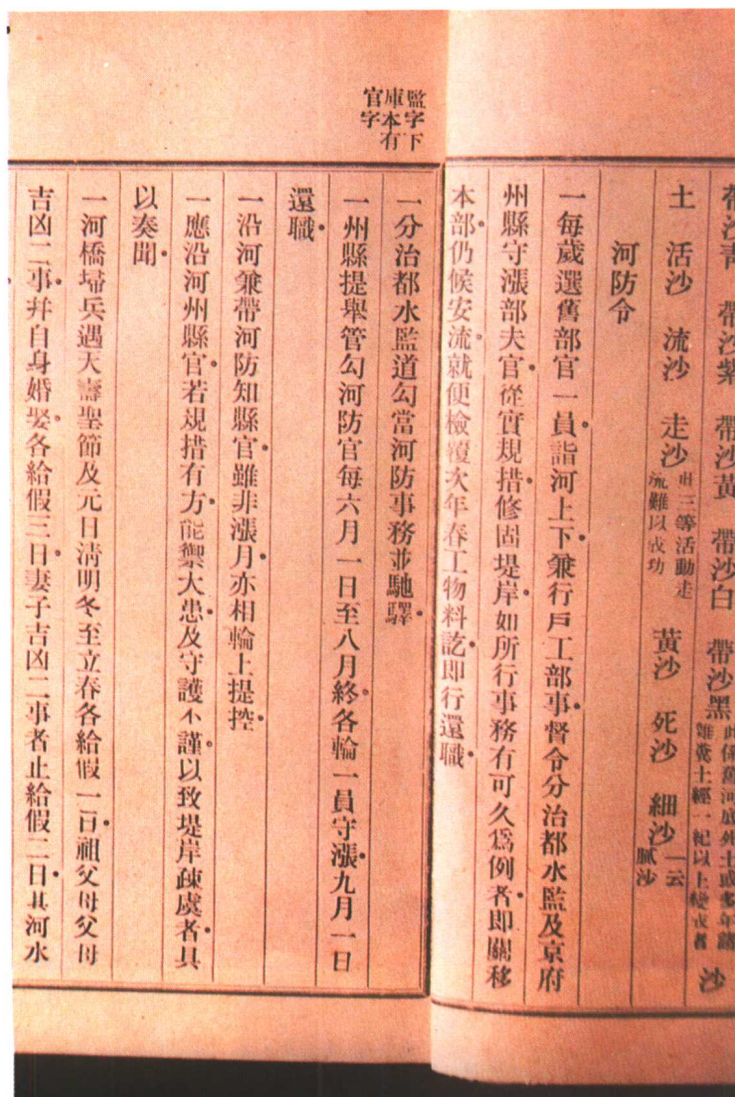 帶沙青　帶沙紫　帶沙黃　帶沙白　帶沙黑此係舊河底死土或多年諸雜糞土經一紀以上變成者　沙
土　活沙　流沙　走沙此三等活動走流難以成功　黃沙　死沙　細沙一云膩沙
河防令
一每歲選舊部官一員詣河上下兼行戶工部事督令分治都水監及京府
州縣守漲部夫官從實規措修固堤岸如所行事務有可久爲例者即關移
本部仍候安流就便檢覆次年春工物料訖即行還職
監字下
庫本有
官字
一分治都水監道勾當河防事務並馳驛
一州縣提舉管勾河防官每六月一日至八月終各輪一員守漲九月一日
還職
一沿河兼帶河防知縣官雖非漲月亦相輪上提控
一應沿河州縣官若規措有方能禦大患及守護不謹以致堤岸疎虞者具
以奏聞
一河橋埽兵遇天壽聖節及元日清明冬至立春各給假一日祖父母父母
吉凶二事并自身婚娶各給假三日妻子吉凶二事者止給假二日其河水